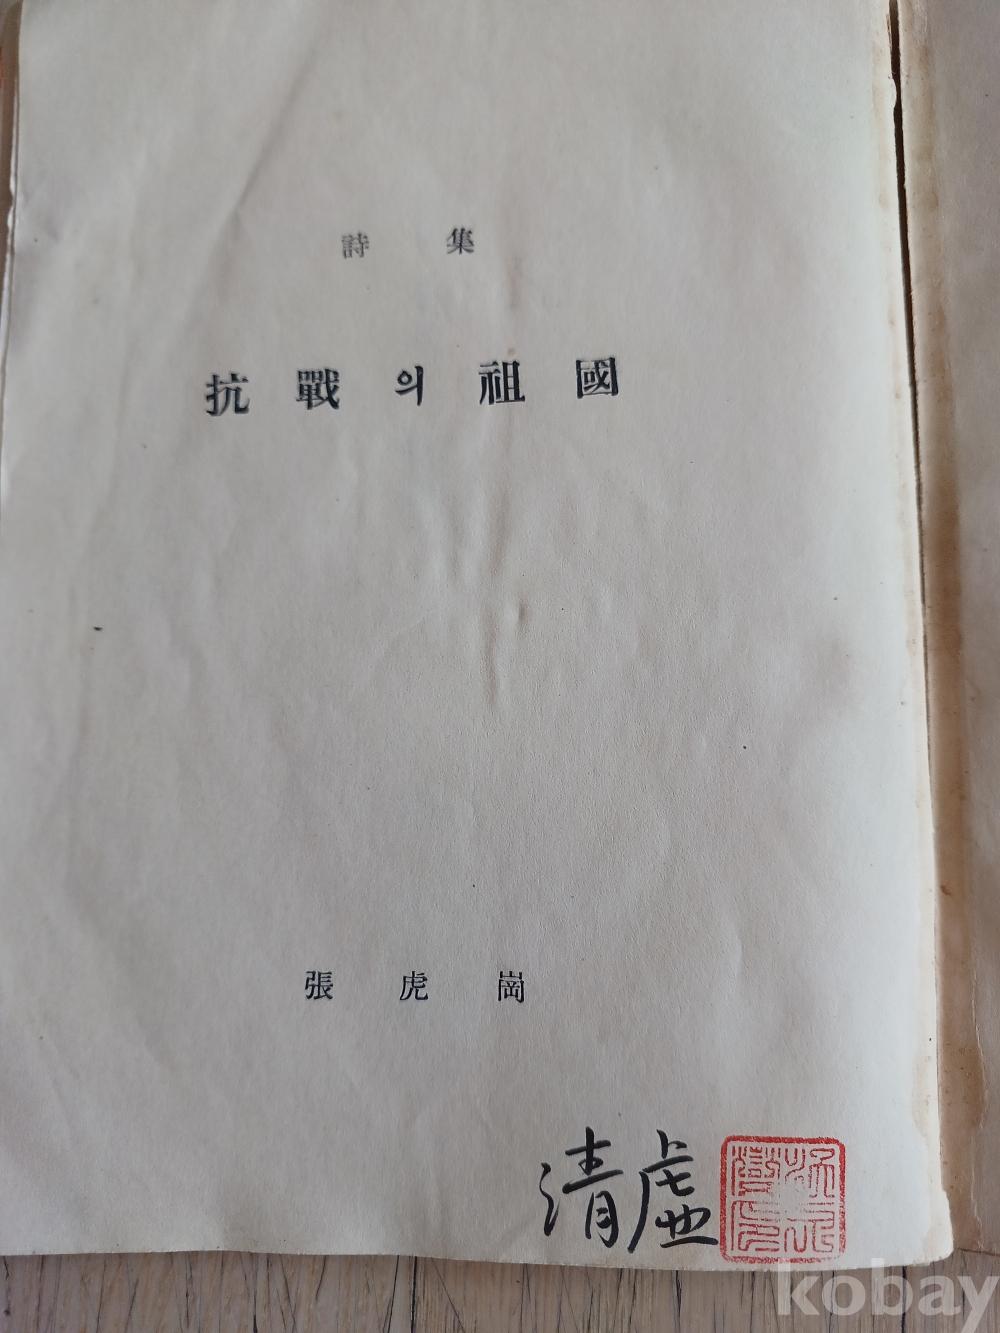 詩集
抗戰의祖國
張虎崗
清虛
kobay